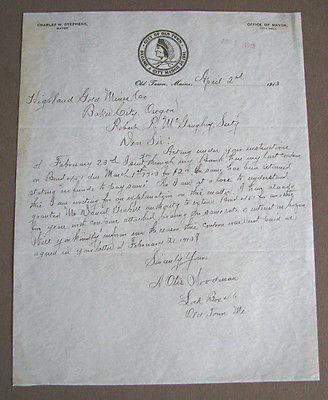 CHARLES W. STEPHENS,
MAYOR
OFFICE OF MAYOR,
CITY HALL
CITY OF OLD TOWN
Old Town, Maine, April 2nd 1913
Highland Gold Mines Co
Baker City, Oregon
Robert R. McGaughey, Secty
Dear Sir:
Acting under your instructions
of February 23rd I sent through my Bank
on Bond due March 1st 1913 for $12 the same has been returned
stating no funds to pay same. As I am at a loss to understand
this I am writing for an explanation in the matter. I have already
granted Mr Daniel authority to extend Bond for another
year with coupons attached
Will you kindly inform me the reason this coupon was not paid as
agreed in your letter of February 21, 1913?
Sincerely Yours
A Otis Woodman
Lock Box 46
Old Town Me